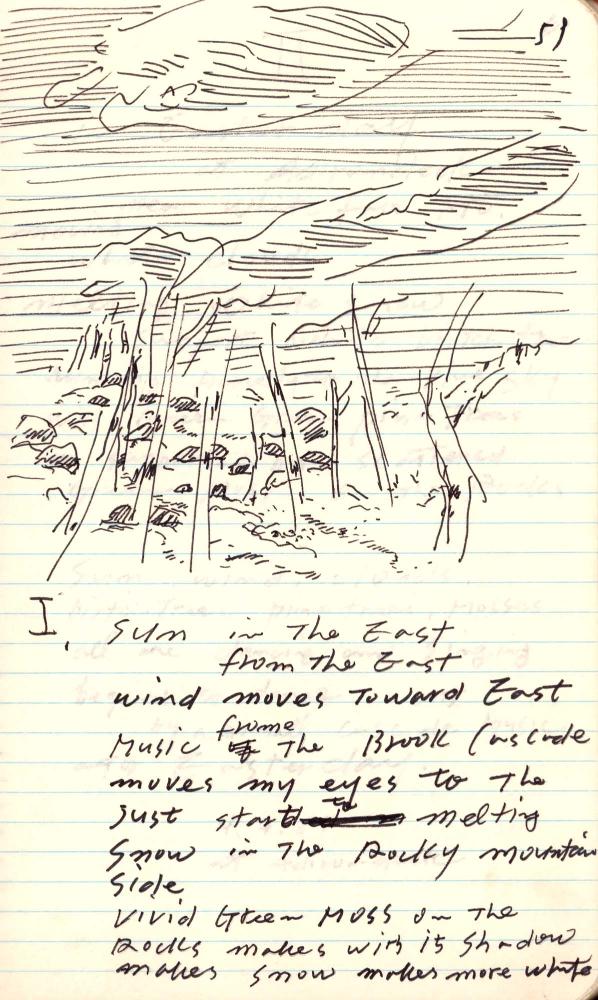 51
I. Sun in The East
from The East
wind moves Toward East
Music frome The Brook Cascade
moves my eyes to The
just start to melting
Snow in The Rocky mountain
Side
Vivid Green Moss on The
Rocks makes with it Shadow
makes snow makes more white